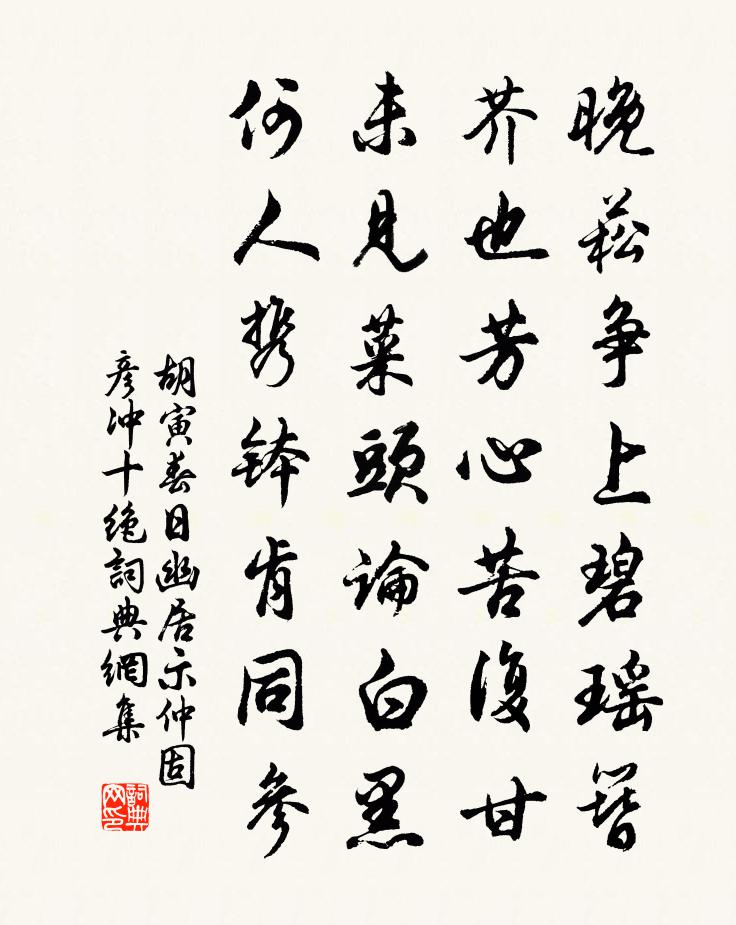 晚菘争上碧瑶簪
芥也芳心苦復甘
未見菜頭論白黑
何人携鉢肯同參
胡寅春日幽居示仲固
彥沖十絶詞典網集
詞典
网印